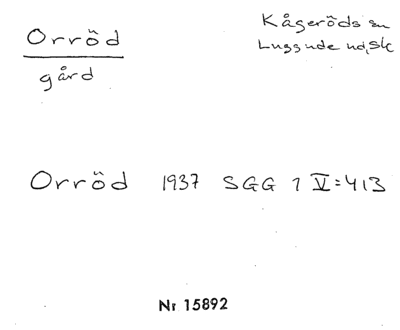 Orröd
gård
Kågeröds sn
Luggude hd, Sk
Orröd 1937 SGG 1 V:413
Nr 15892